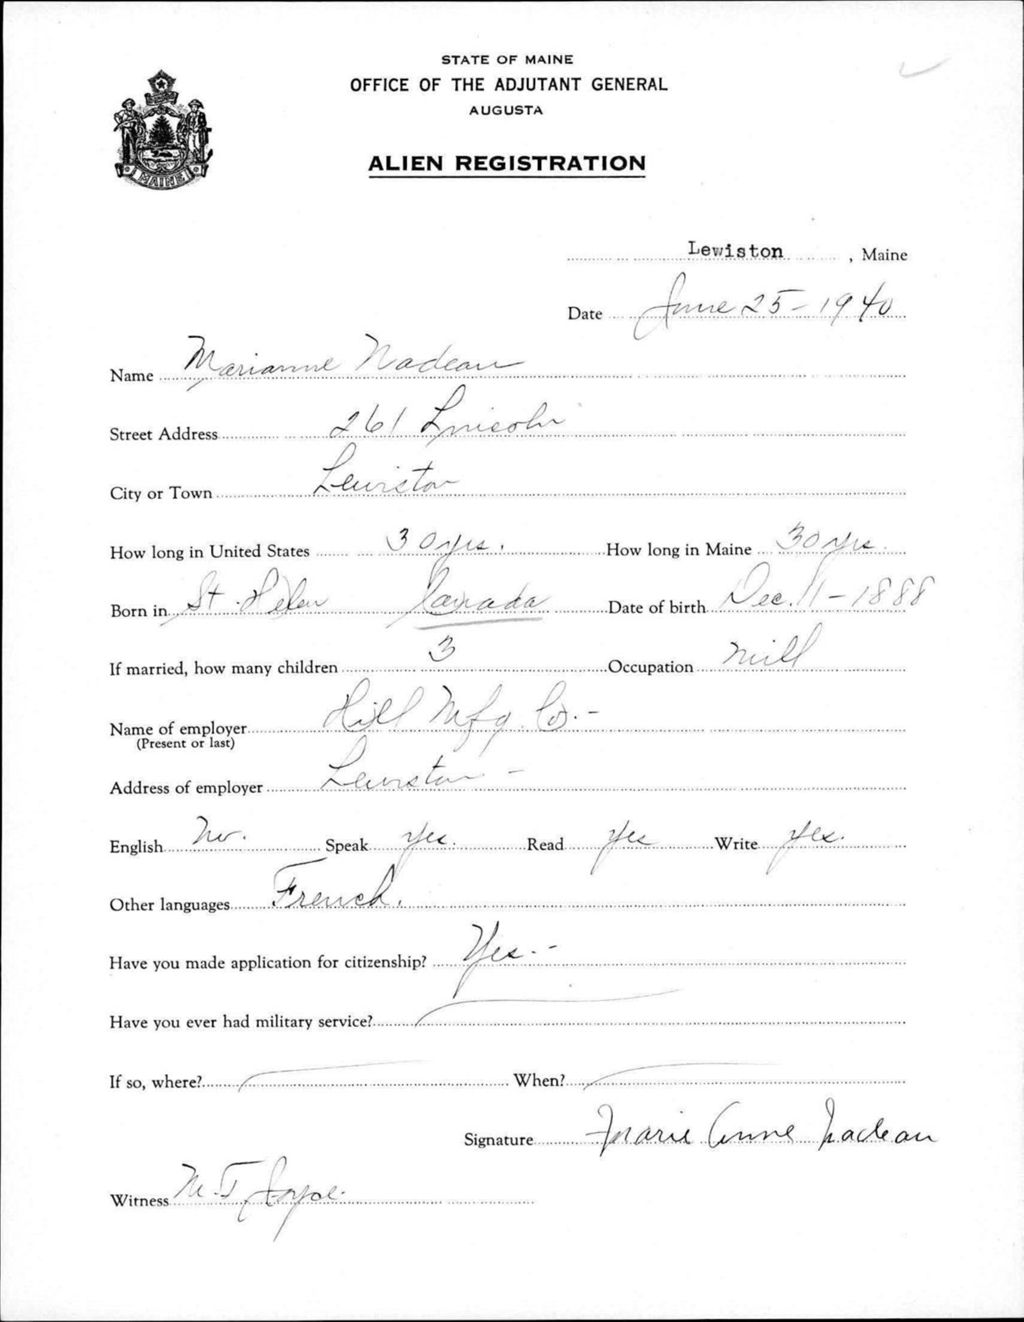 STATE OF MAINE
OFFICE OF THE ADJUTANT GENERAL
AUGUSTA
ALIEN REGISTRATION
MAINE
Lewiston, Maine
Date June 25-1940
Name Marianne Nadeau
Street Address 261 Lincoln
City or Town Lewiston
How long in United States 30 yrs. How long in Maine 30 yrs.
Born in St. Helen Canada Date of birth Dec. 11-1888
If married, how many children 3 Occupation Mill
Name of employer Hill Mfg Co.-
(Present or last)
Address of employer Lewiston -
English No. Speak Yes. Read Yes Write Yes.
Other languages French.
Have you made application for citizenship? Yes.-
Have you ever had military service?
If so, where? When?
Signature Marie Anne Nadeau
Witness M. T. Joyce.